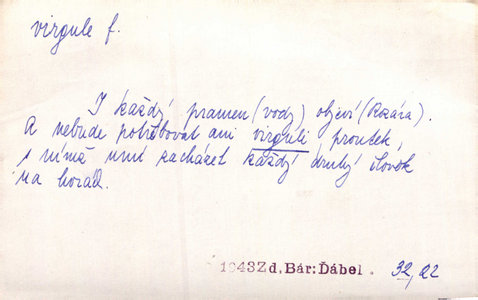 virgule f.
I každý pramen (vody) objeví (Rozára).
A nebude potřebovat ani virguli proutek,
s nímž umí zacházet každý druhý člověk
na horách.
1943 Zd. Bár: Ďábel. 32, 22